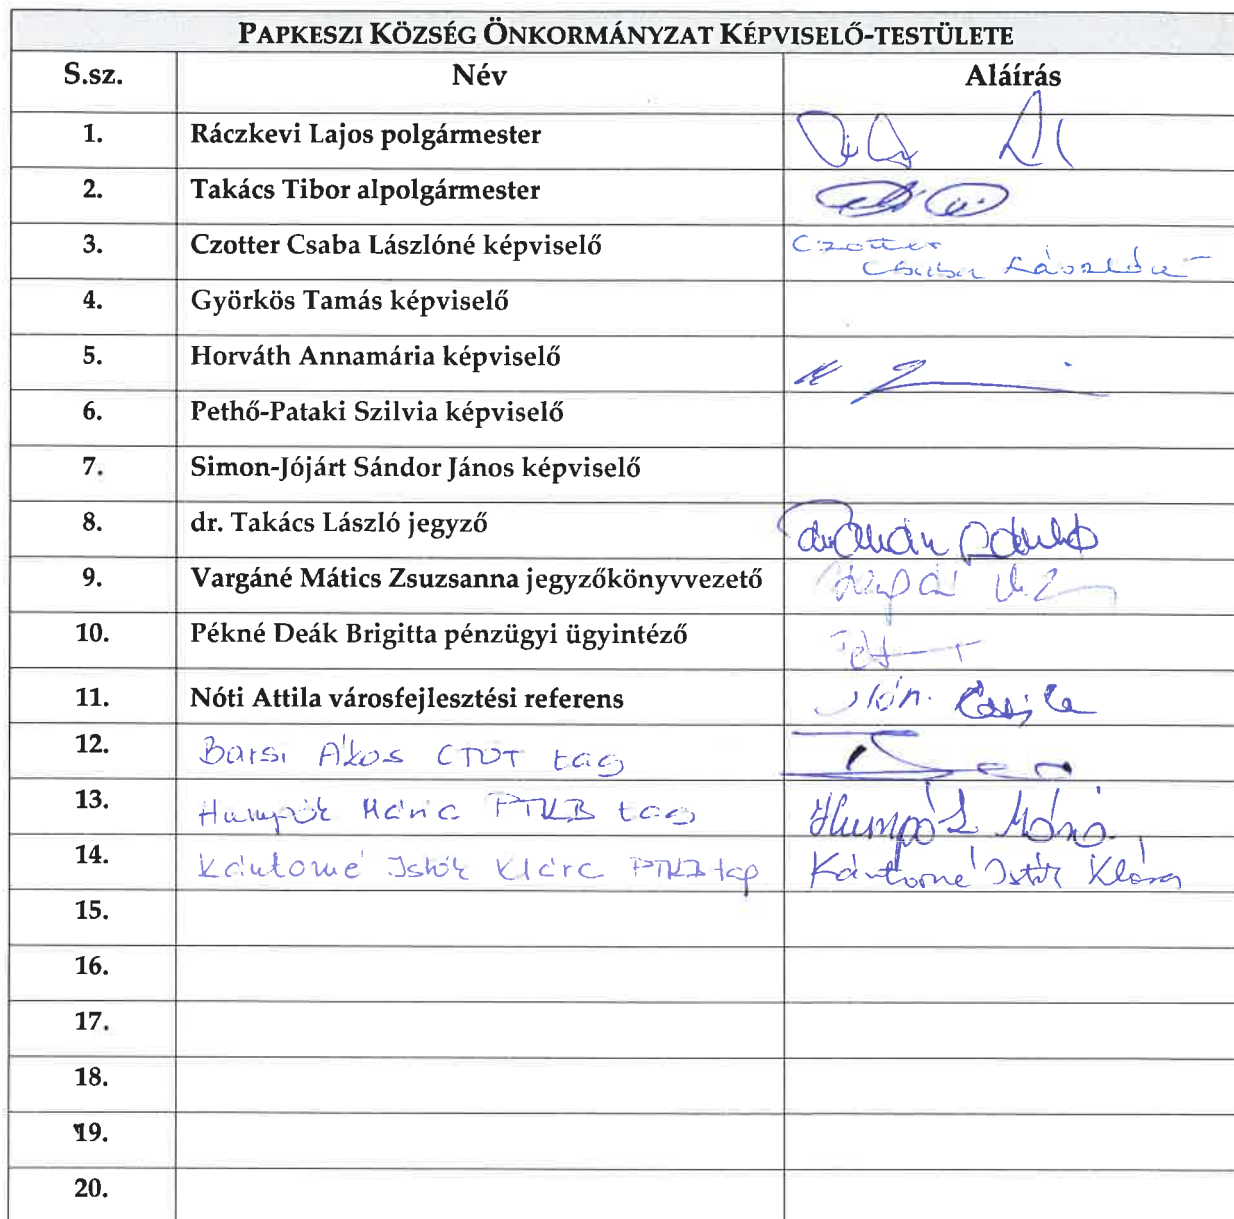 PAPKESZI KÖZSÉG ÖNKORMÁNYZAT KÉPVISELŐ-TESTÜLETE
S.sz. Név Aláírás
1. Ráczkevi Lajos polgármester
2. Takács Tibor alpolgármester
3. Czotter Csaba Lászlóné képviselő Czotter
Csaba Lászlóné
4. Györkös Tamás képviselő
5. Horváth Annamária képviselő
6. Pethő-Pataki Szilvia képviselő
7. Simon-Jójárt Sándor János képviselő
8. dr. Takács László jegyző
9. Vargáné Mátics Zsuzsanna jegyzőkönyvvezető
10. Pékné Deák Brigitta pénzügyi ügyintéző
11. Nóti Attila városfejlesztési referens
12. Barsi Ákos CTDT tag
13. Humpók Mária PTKB tag Humpók Mária
14. Kántorné Istók Klára PTKB tag Kántorné Istók Klára
15.
16.
17.
18.
19.
20.